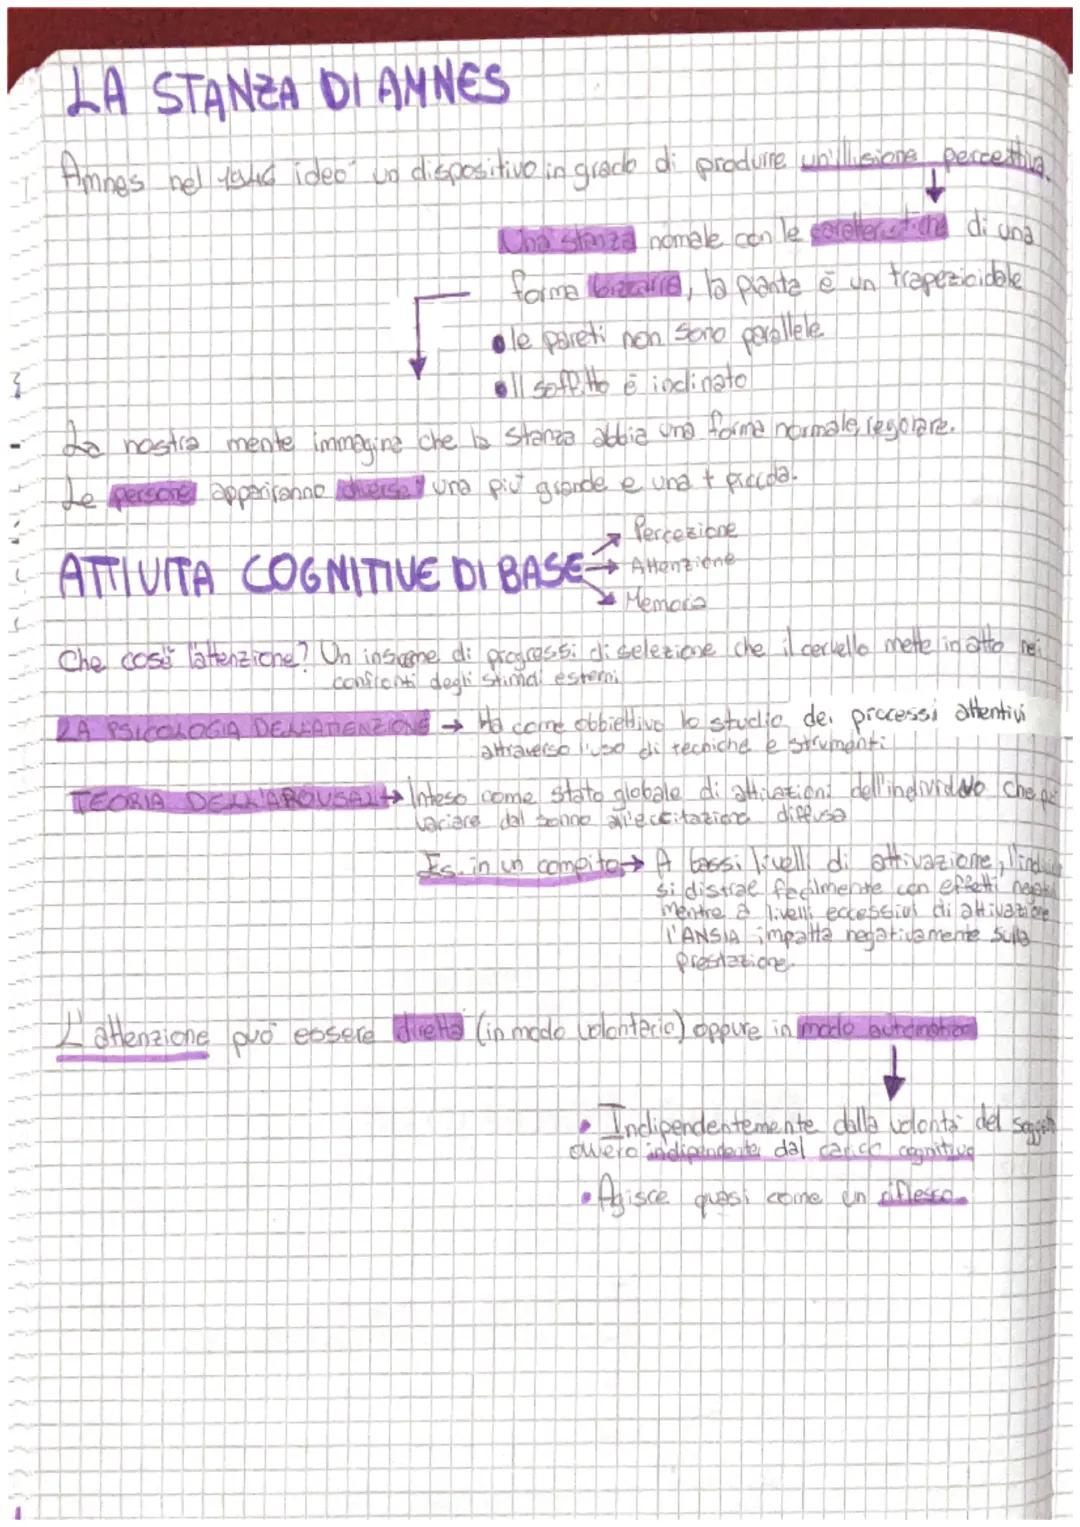 LA STANZA DI AMNES
Amnes nel 1946 ideo' un dispositivo in grado di produrre un'illusione percettiva.
Una stanza normale con le caratteristiche di una
forma bizzarra, la pianta è un trapezioidale
• le pareti non sono parallele
• Il soffitto è inclinato
La nostra mente immagina che la stanza abbia una forma normale, regolare.
Le persone appariranno diverse una più grande e una + piccola.
ATTIVITA COGNITIVE DI BASE
→ Percezione
→ Attenzione
→ Memoria
Che cos'è l'attenzione? Un insieme di progressi di selezione che il cervello mette in atto nei
confronti degli stimoli esterni
LA PSICOLOGIA DELL'ATTENZIONE → Ha come obbiettivo lo studio dei processi attentivi
attraverso l'uso di tecniche e strumenti
TEORIA DELL'AROUSAL → Inteso come stato globale di attivazioni dell'individuo che
variare dal sonno all'eccitazione diffusa
Es. in un compito → A bassi livelli di attivazione,
si distrae facilmente con effetti
mentre a livelli eccessivi di attivazione
l'ANSIA impatta negativamente sulla
prestazione.
L'attenzione può essere diretta (in modo volontario) oppure in modo automatico
• Indipendentemente dalla volontà del
ovvero indipendente dal carico cognitivo
• Agisce quasi come un riflesso.